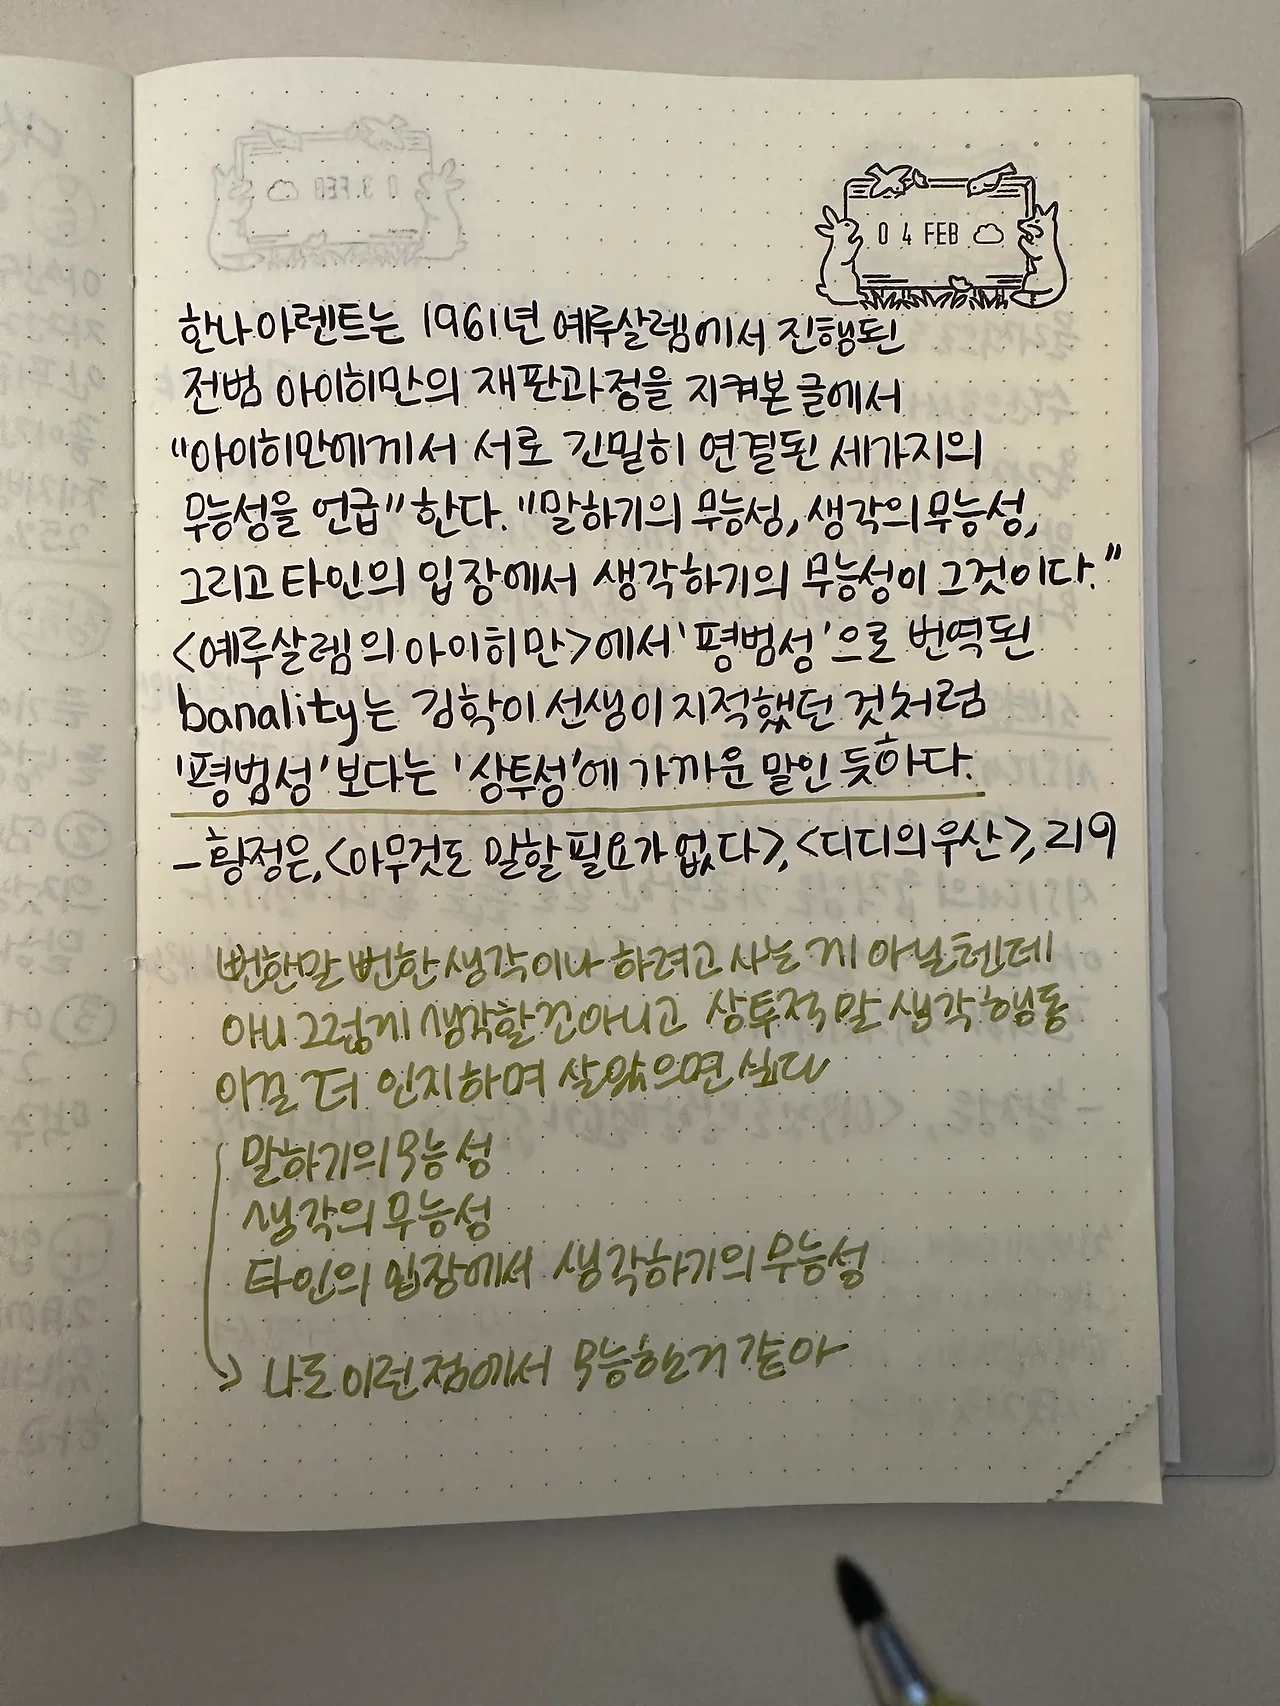 04 FEB
한나 아렌트는 1961년 예루살렘에서 진행된
전범 아이히만의 재판과정을 지켜본 글에서
"아이히만에게서 서로 긴밀히 연결된 세가지의
무능성을 언급" 한다. "말하기의 무능성, 생각의 무능성,
그리고 타인의 입장에서 생각하기의 무능성이 그것이다."
<예루살렘의 아이히만>에서 '평범성'으로 번역된
banality는 김학이 선생이 지적했던 것처럼
'평범성'보다는 '상투성'에 가까운 말인 듯하다.
- 황정은, <아무것도 말할 필요가 없다>, <디디의 우산>, 219
뻔한말 뻔한 생각이나 하려고 사는 게 아닐텐데
아니 그렇게 생각할건아니고 상투적 말 생각 행동
이걸 더 인지하며 살았으면 싶다
말하기의 무능성
생각의 무능성
타인의 입장에서 생각하기의 무능성
나도 이런 점에서 무능한거 같아